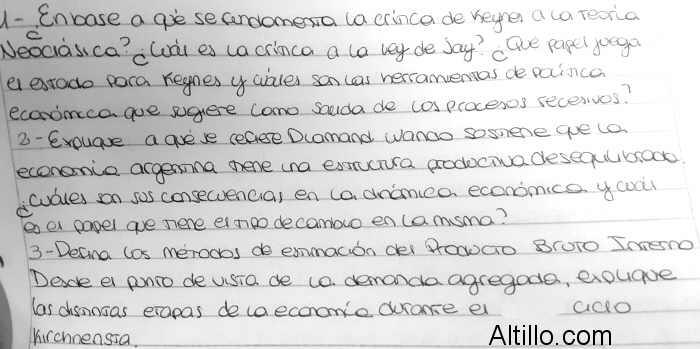 1- ¿En base a qué se fundamenta la crítica de Keynes a la Teoría
Neoclásica? ¿Cuál es la crítica a la ley de Say? ¿Qué papel juega
el estado para Keynes y cuáles son las herramientas de política
económica que sugiere como salida de los procesos recesivos?
2- Explique a qué se refiere Diamand cuando sostiene que la
economía argentina tiene una estructura productiva desequilibrada.
¿Cuáles son sus consecuencias en la dinámica económica y cuál
es el papel que tiene el tipo de cambio en la misma?
3- Defina los métodos de estimación del Producto Bruto Interno
Desde el punto de vista de la demanda agregada, explique
las distintas etapas de la economía durante el ciclo
Kirchnerista.
Altillo.com